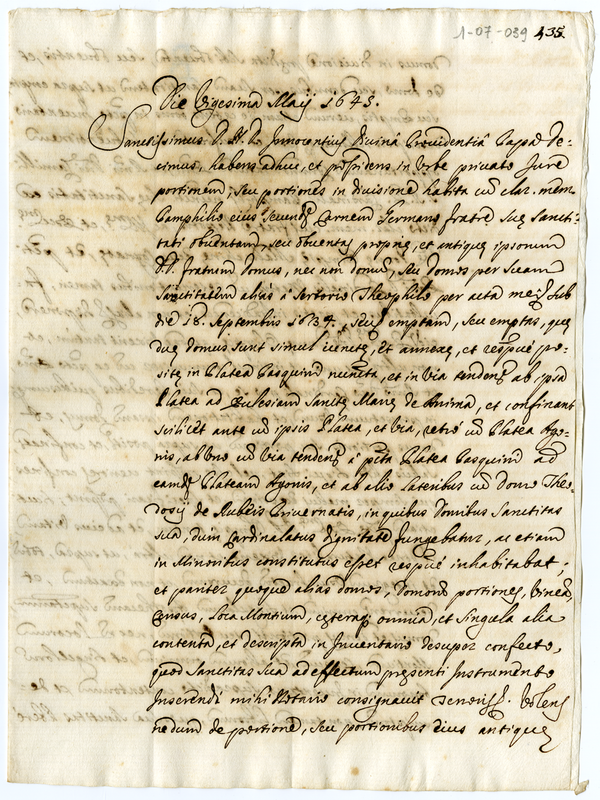 1-07-039 435.
Die Vigesima Maij 1645.
Sanctissimus D. N. D. Innocentius divinâ Providentiâ Papa De:
cimus, habens adhuc, et possidens in Urbe privato Jure
portionem, seu portiones in divisione habita cū clar. mem.
Pamphilio eius secundū carnem Germano fratre suę Sancti:
tati obventam, seu obventas proprię, et antiquę ipsorum
DD. fratrum domus, nec non domū, seu domos per Suam
Sanctitatem aliàs à Sertorio Theophilo per acta mei sub
die 18. Septembris 1634. emptam, seu emptas, quę
duę domus sunt simul iunctę, et annexę, et respuè po:
sitę in Platea Pasquini nuncta, et in via tendenť ab ipsa
Platea ad Ecclesiam Sanctę Marię de Anima, et confinant
scilicet ante cū ipsis Platea, et via, retro cū Platea Ago:
nis, ab uno cū via tendenť à pcta Platea Pasquini ad
eamđ Plateam Agonis, et ab alio lateribus cū domo Theo:
dosij de Rubeis Privernatis, in quibus domibus Sanctitas
Sua, dum Cardinalatus dignitate fungebatur, ac etiam
in Minoribus constitutus esset respuè inhabitabat;
et pariter quoque alias domos, domorū portiones, Vineā,
Census, Loca Montium, cęteraq omnia, et singula alia
contenta, et descripta in Inventario desuper confecto,
quod Sanctitas Sua ad effectum pręsenti Instrumento
Inserendi mihi Notario consignavit tenoris. Volens
nedum de portione, seu portionibus eius antiquę